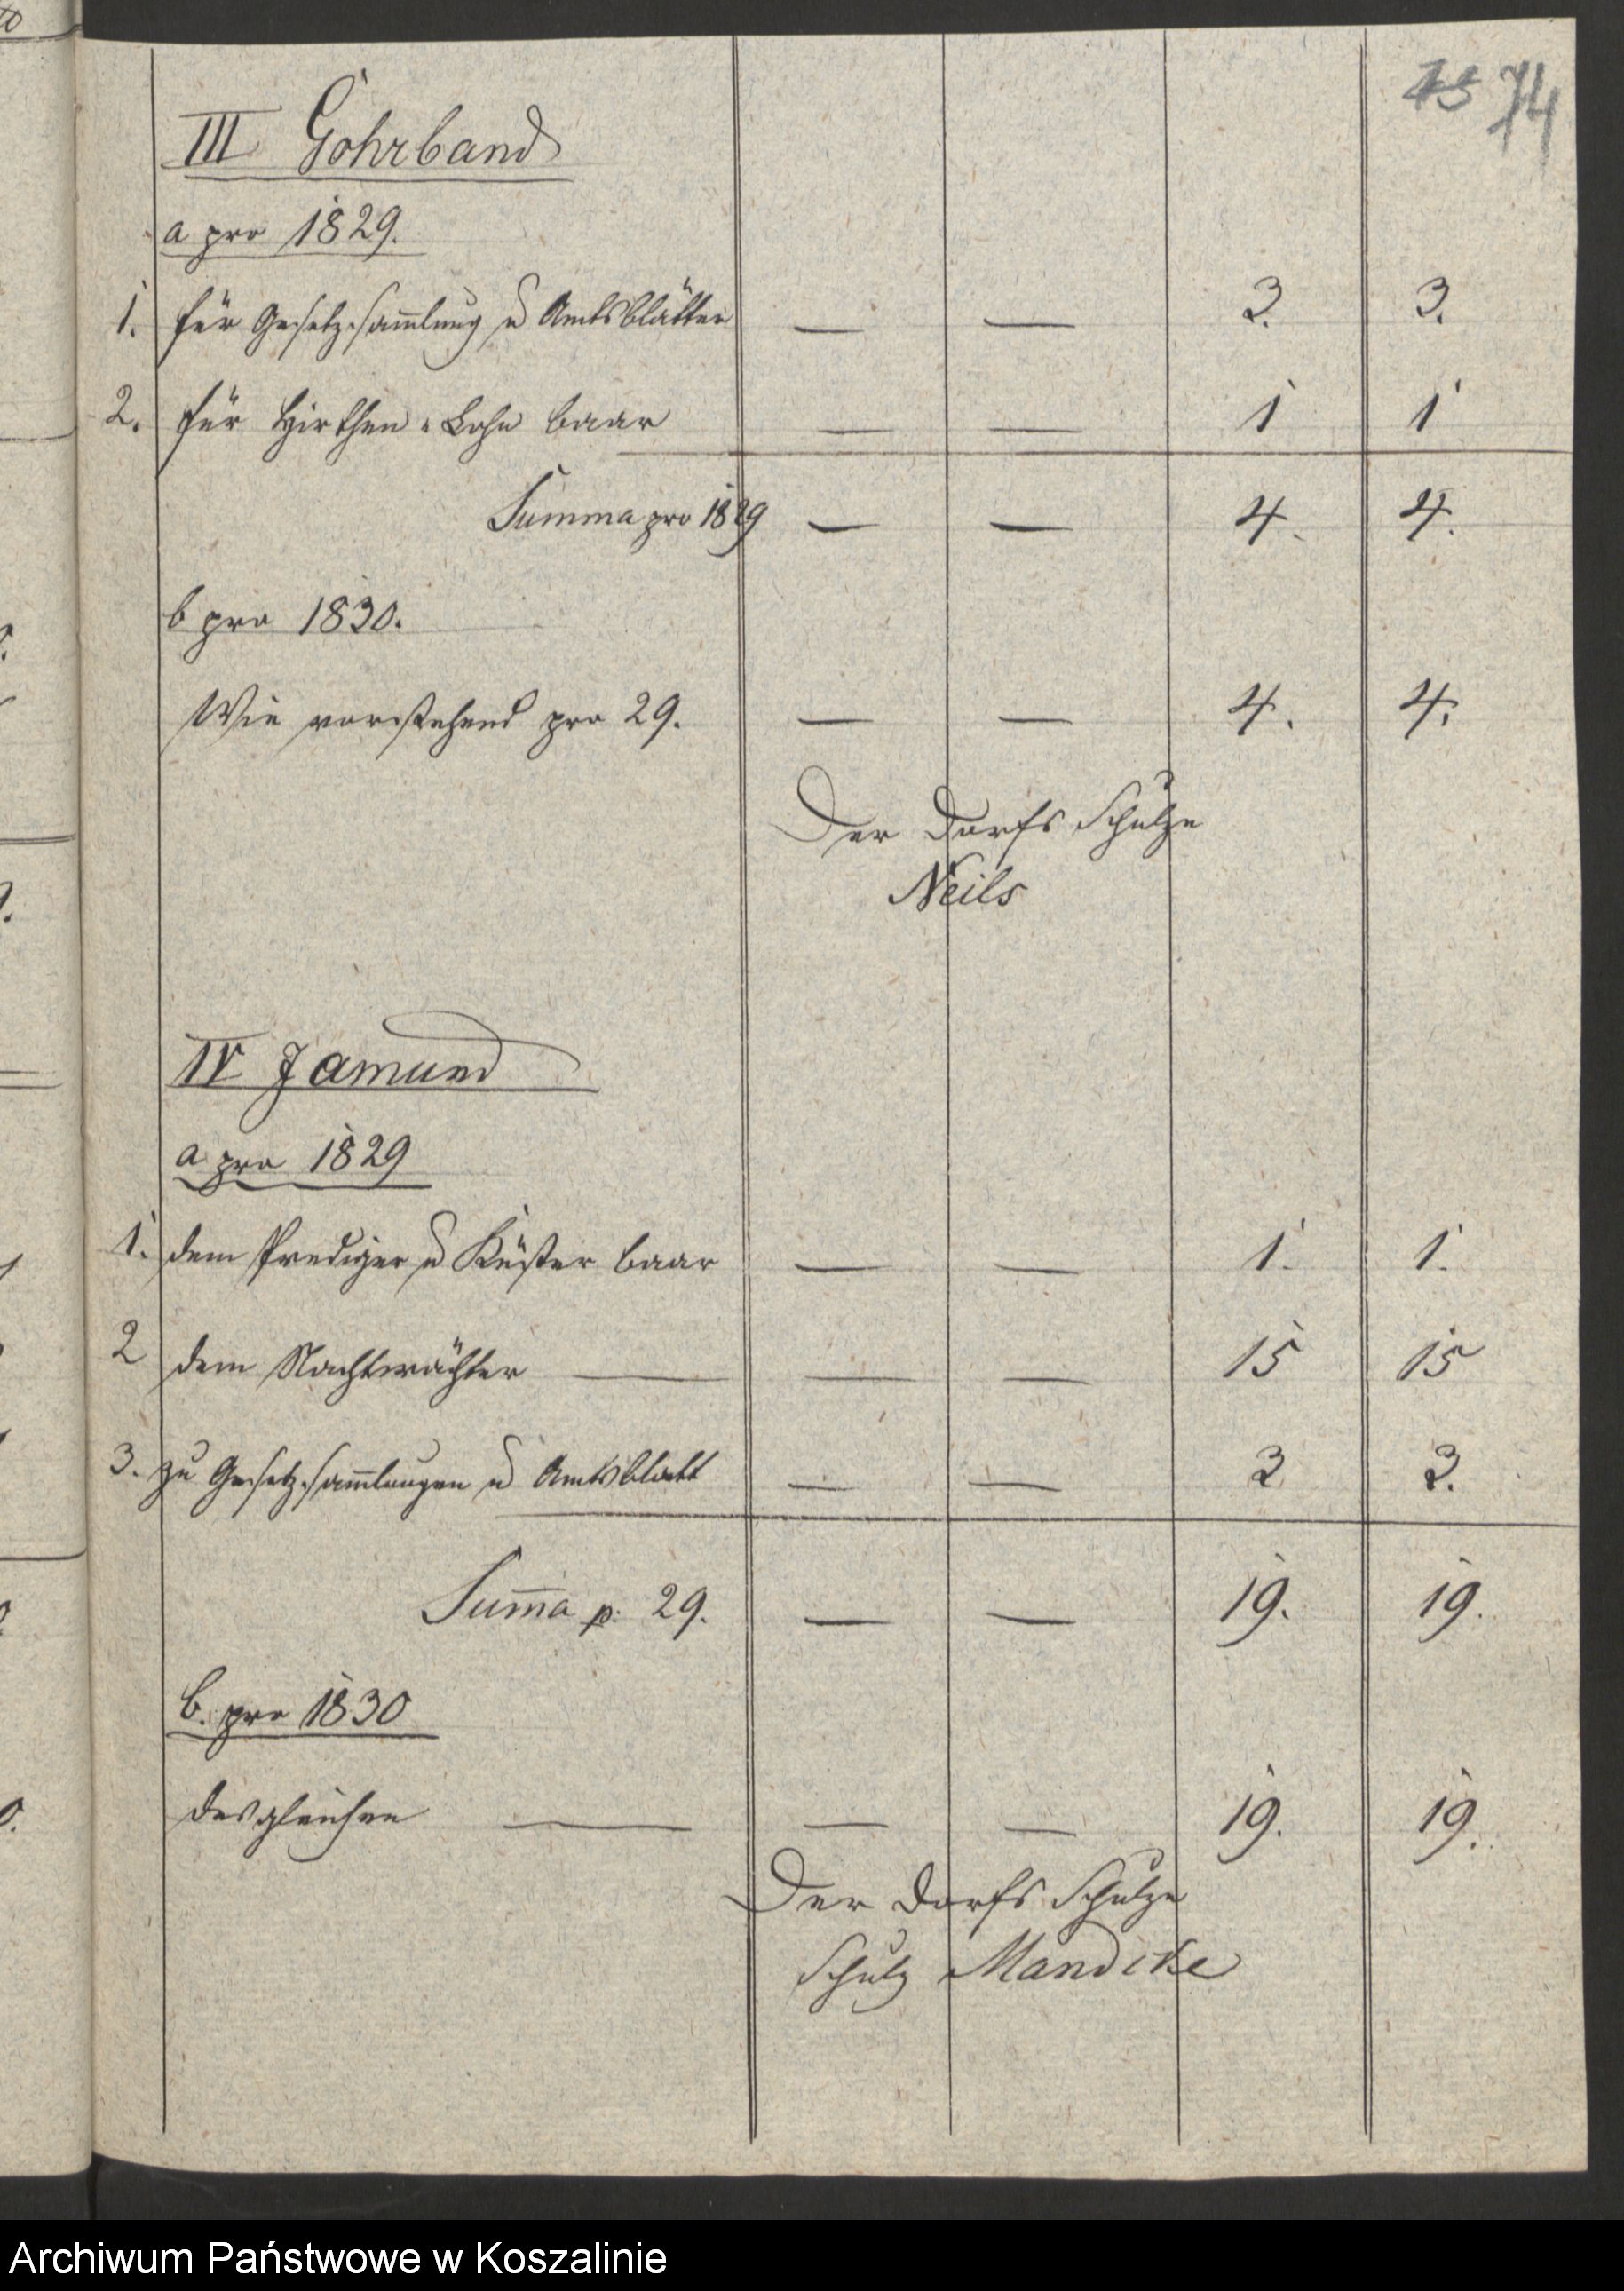 75 74
III Gohrband
a pro 1829.
1. für Gesetz-Sammlung u Amtsblätter — — 3. 3.
2. für Hirthen-Lohn baar — — 1 1
Summa pro 1829 — — 4. 4.
b pro 1830.
Wie vorstehend pro 29. — — 4. 4.
Der Dorfs Schulze
Neils
IV Jamund
a pro 1829
1. dem Prediger u Küster baar — — 1. 1.
2 dem Nachtwächter — — — 15 15
3. zu Gesetz-Sammlungen u Amtsblatt — — 3 3.
Sum̅a p: 29. — — 19. 19.
b. pro 1830
desgleichen — — — 19. 19.
Der Dorfs Schulze
Schulz Mandike
Archiwum Państwowe w Koszalinie